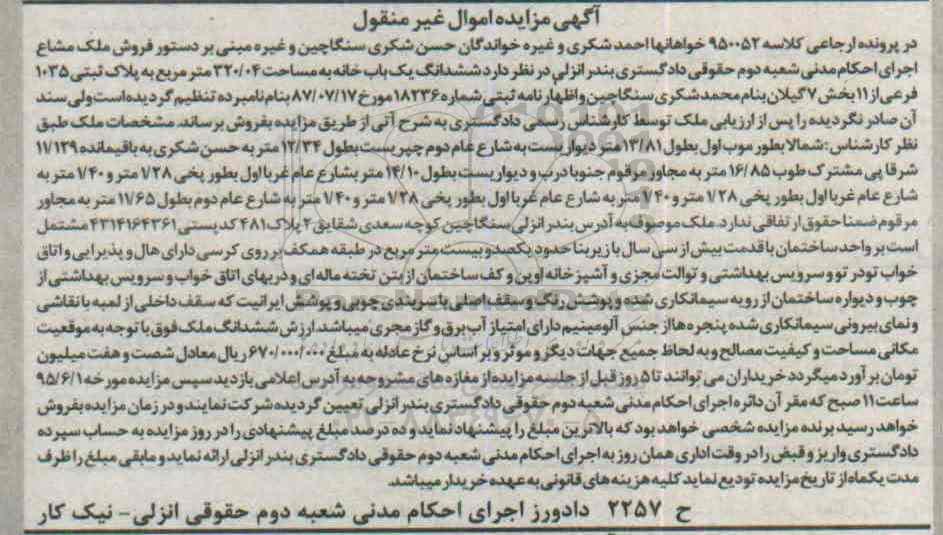 آگهی مزایده اموال غیر منقول
در پرونده ارجاعی کلاسه ۹۵۰۰۵۲ خواهانها احمد شکری و غیره خواندگان حسن شکری سنگاچین و غیره مبنی بر دستور فروش ملک مشاع
اجرای احکام مدنی شعبه دوم حقوقی دادگستری بندر انزلی در نظر دارد ششدانگ یک باب خانه به مساحت ۳۲۰/۰۴ متر مربع به پلاک ثبتی ۱۰۳۵
فرعی از ۱۱ بخش ۷ گیلان بنام محمد شکری سنگاچین و اظهار نامه ثبتی شماره ۱۸۲۳۶ مورخ ۸۷/۰۷/۱۷ بنام نامبرده تنظیم گردیده است ولی سند
آن صادر نگردیده را پس از ارزیابی ملک توسط کارشناس رسمی دادگستری به شرح آتی از طریق مزایده بفروش برساند. مشخصات ملک طبق
نظر کارشناس: شمالا بطور مورب اول بطول ۱۳/۸۱ متر دیواریست به شارع عام دوم چپریست بطول ۱۲/۳۴ متر به حسن شکری به باقیمانده ۱۱/۱۲۹
شرقا پی مشترک طوب ۱۶/۸۵ متر به مجاور مرقوم جنوبا درب و دیواریست بطول ۱۴/۱۰ متر بشارع عام غربا اول بطور پخی ۱/۲۸ متر و ۱/۴۰ متر به
شارع عام غربا اول بطور پخی ۱/۲۸ متر و ۱/۴۰ متر به شارع عام غربا اول بطور پخی ۱/۲۸ متر و ۱/۴۰ متر به شارع عام دوم بطول ۱۱/۶۵ متر به مجاور
مرقوم ضمنا حقوق ارتفاقی ندارد. ملک موصوف به آدرس بندر انزلی سنگاچین کوچه سعدی شقایق ۲ پلاک ۴۸۱ کد پستی ۴۳۱۴۱۶۴۳۶۱ مشتمل
است بر واحد ساختمان با قدمت بیش از سی سال با زیربنا حدود یکصد و بیست متر مربع در طبقه همکف بر روی کرسی دارای هال و پذیرایی و اتاق
خواب تودرتو و سرویس بهداشتی و توالت مجزی و آشپزخانه اوپن و کف ساختمان از بتن تخته ماله ای و دربهای اتاق خواب و سرویس بهداشتی از
چوب و دیواره ساختمان از رو به سیمانکاری شده و پوشش رنگ و سقف اصلی با سربندی چوبی و پوشش ایرانیت که سقف داخلی از لمبه با نقاشی
و نمای بیرونی سیمانکاری شده پنجره ها از جنس آلومینیم دارای امتیاز آب برق و گاز مجری میباشد. ارزش ششدانگ ملک فوق با توجه به موقعیت
مکانی مساحت و کیفیت مصالح و به لحاظ جمیع جهات دیگر و موثر و بر اساس نرخ عادله به مبلغ ۶۷۰/۰۰۰/۰۰۰ ریال معادل شصت و هفت میلیون
تومان برآورد میگردد خریداران می توانند تا ۵ روز قبل از جلسه مزایده از مغازه های مشروحه به آدرس اعلامی بازدید سپس مزایده مورخه ۹۵/۶/۱
ساعت ۱۱ صبح که مقر آن دائره اجرای احکام مدنی شعبه دوم حقوقی دادگستری بندر انزلی تعیین گردیده شرکت نمایند و در زمان مزایده بفروش
خواهد رسید برنده مزایده شخصی خواهد بود که بالاترین مبلغ را پیشنهاد نماید و ده درصد مبلغ پیشنهادی را در روز مزایده به حساب سپرده
دادگستری واریز و قبض را در وقت اداری همان روز به اجرای احکام مدنی شعبه دوم حقوقی دادگستری بندر انزلی ارائه نماید و مابقی مبلغ را ظرف
مدت یکماه از تاریخ مزایده تودیع نماید کلیه هزینه های قانونی به عهده خریدار میباشد.
ح ۲۲۵۷ دادورز اجرای احکام مدنی شعبه دوم حقوقی انزلی - نیک کار